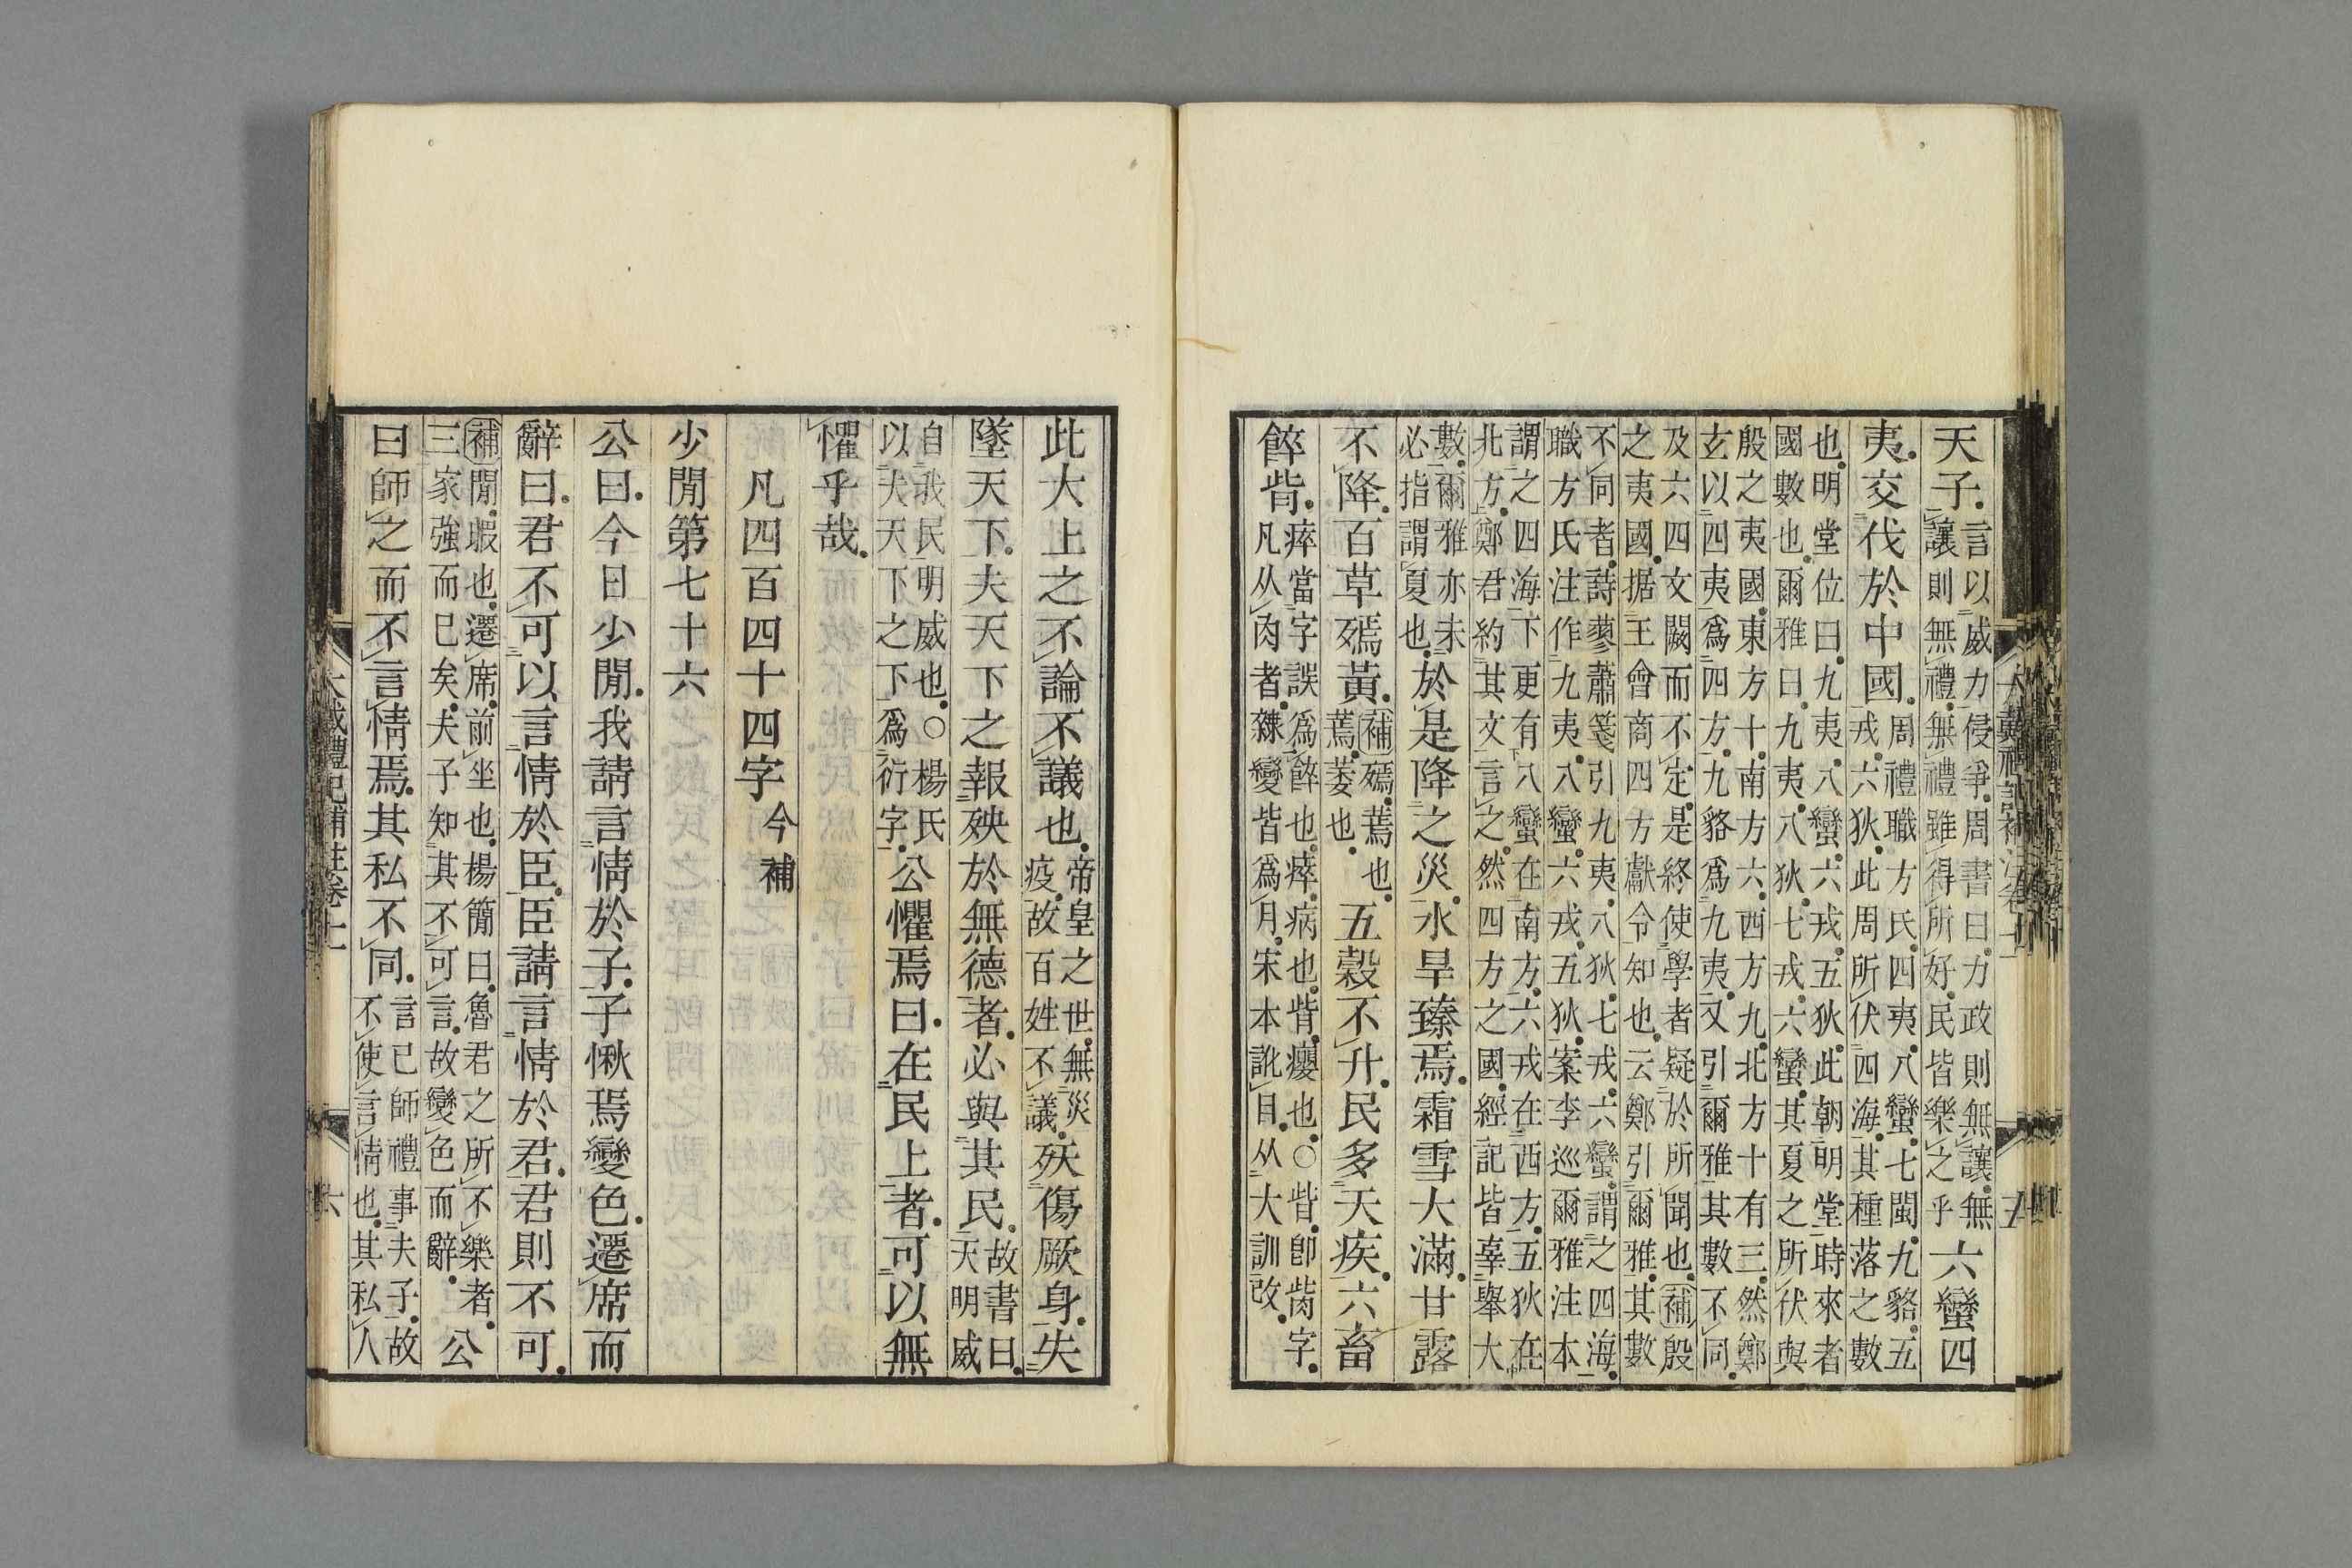 天子言以威力侵爭周書曰力政則無讓無
讓則無禮無禮雖得所好民皆樂之乎六蠻四
夷交伐於中國周禮職方氏四夷八蠻七閩九貉五
戎六狄此周所伏四海其種落之數
也明堂位曰九夷八蠻六戎五狄此朝明堂時來者
國數也爾雅曰九夷八狄七戎六蠻其夏之所伏與
殷之夷國東方十南方六西方九北方十有三然鄭
玄以四夷爲四方九貉爲九夷又引爾雅其數不同
及六四文闕而不定是終使學者疑於所聞也補殷
之夷國据王會商四方獻令知也云鄭引爾雅其數
不同者詩蓼蕭箋引九夷八狄七戎六蠻謂之四海
職方氏注作九夷八蠻六戎五狄案李巡爾雅注本
謂之四海下更有八蠻在南方六戎在西方五狄在
北方鄭君約其文言之然四方之國經記皆辜舉大
數爾雅亦未
必指謂夏也於是降之災水旱臻焉霜雪大滿甘露
不降百草殰黃補殰蔫也
蔫萎也五穀不升民多夭疾六畜
餯胔瘁當字誤爲餯也瘁病也胔癭也○胔卽胔字
凡从肉者隷變皆爲月宋本訛目从大訓改
此大上之不論不議也帝皇之世無災
疫故百姓不議殀傷厥身失
墜天下夫天下之報殃於無德者必與其民故書曰
天明威
自我民明威也○楊氏
以夫天下之下爲衍字公懼焉曰在民上者可以無
懼乎哉
凡四百四十四字今補
少閒第七十六
公曰今日少閒我請言情於子子愀焉變色遷席而
辭曰君不可以言情於臣臣請言情於君君則不可
補閒暇也遷席前坐也楊簡曰魯君之所不樂者
三家強而巳矣夫子知其不可言故變色而辭公
曰師之而不言情焉其私不同言已師禮事夫子故
不使言情也其私人
大戴禮記補注卷十一
六
五